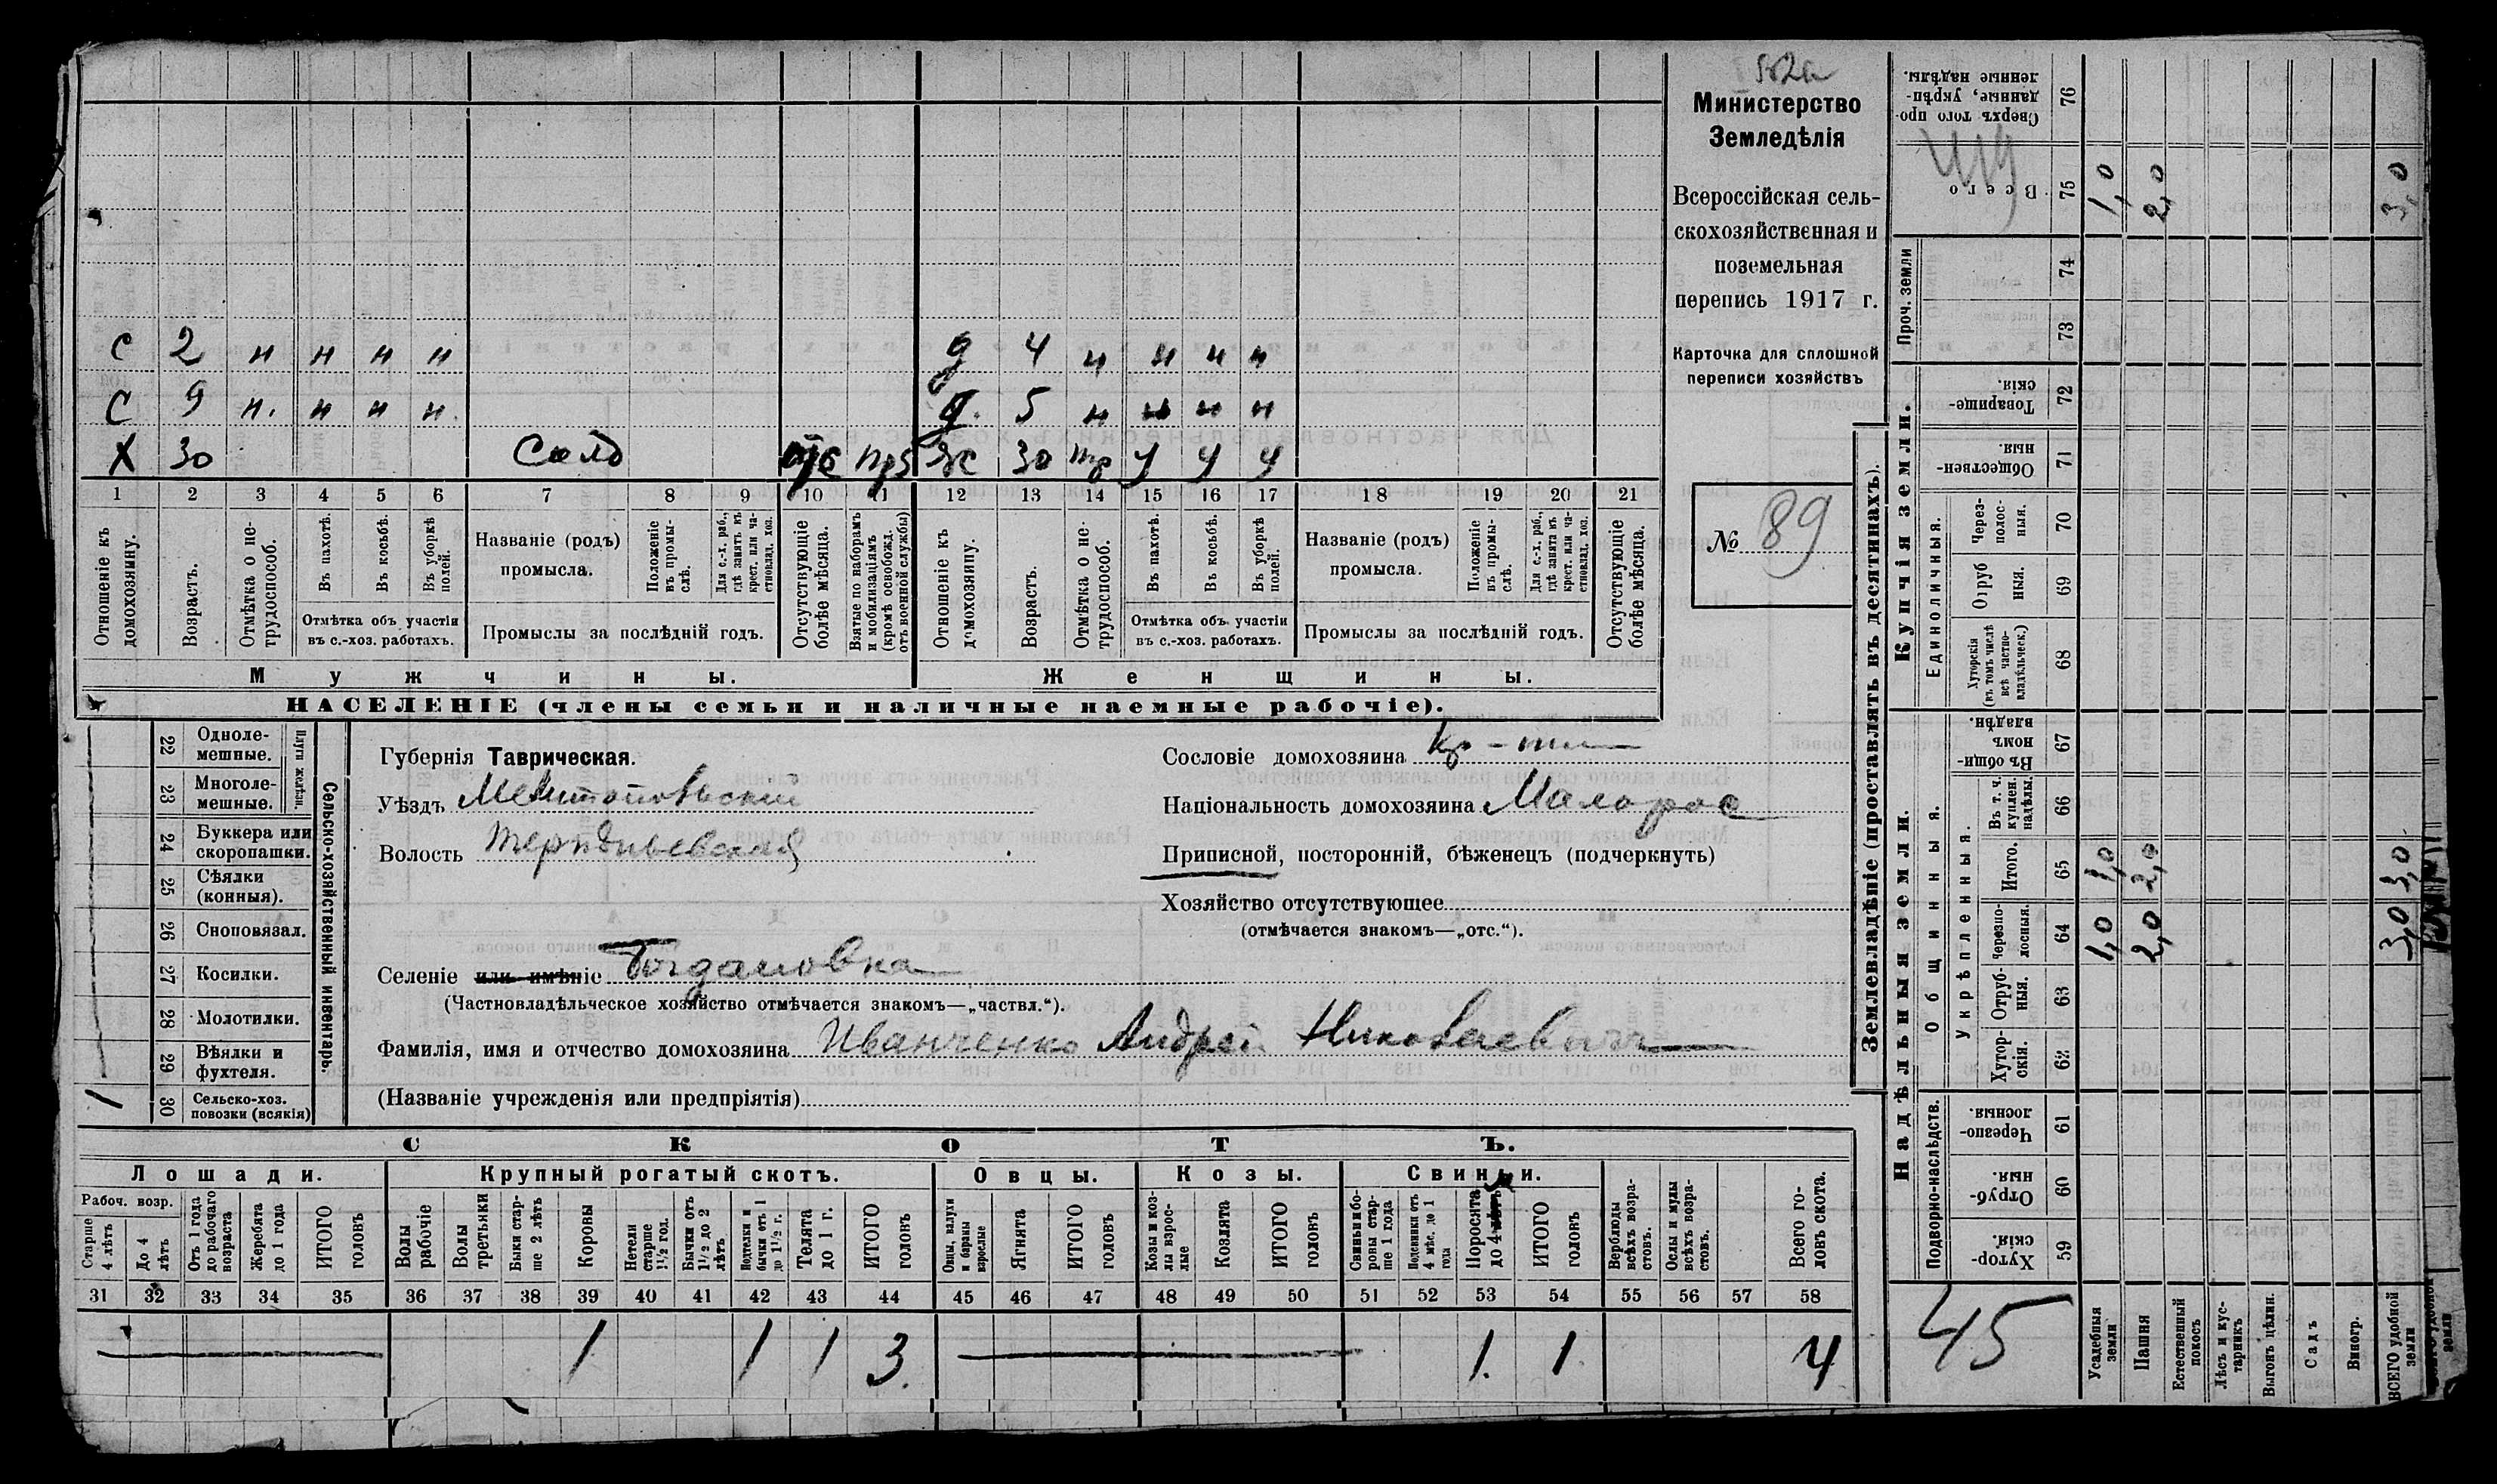 Министерство
Земледѣлія
Всероссійская сель-
скохозяйственная и
поземельная
перепись 1917 г.
Карточка для сплошной
переписи хозяйствъ
№ 89
С 2 н н н н д 4 н н н н
С 9 н. н н н. д. 5 н н н н
Х 30 Солд отс Ж 30 тр у у у
1 2 3 4 5 6 7 8 9 10 11 12 13 14 15 16 17 18 19 20 21
Отношеніе къ домохозяину.
Возрастъ.
Отмѣтка о не-трудоспособ.
Въ пахотѣ.
Въ косьбѣ.
Въ уборкѣ полей.
Отмѣтка объ участіи въ с.-хоз. работахъ.
Названіе (родъ) промысла.
Положеніе въ промы-слѣ.
Для с.-х. раб., гдѣ занятъ въ крест. или ча-стновлад. хоз.
Промыслы за послѣдній годъ.
Отсутствующіе болѣе мѣсяца.
Взятые по наборамъ и мобилизаціямъ (кромѣ освобожд. отъ военной службы)
Отношеніе къ домохозяину.
Возрастъ.
Отмѣтка о не-трудоспособ.
Въ пахотѣ.
Въ косьбѣ.
Въ уборкѣ полей.
Отмѣтка объ участіи въ с.-хоз. работахъ.
Названіе (родъ) промысла.
Положеніе въ промы-слѣ.
Для с.-х. раб., гдѣ занята въ крест. или ча-стновлад. хоз.
Промыслы за послѣдній годъ.
Отсутствующіе болѣе мѣсяца.
Мужчины. Женщины.
НАСЕЛЕНІЕ (члены семьи и наличные наемные рабочіе).
22 Одноле-мешные.
23 Многоле-мешные.
Плуги желѣзн.
24 Буккера или скоропашки.
25 Сѣялки (конныя).
26 Сноповязал.
27 Косилки.
28 Молотилки.
29 Вѣялки и фухтеля.
1 30 Сельско-хоз. повозки (всякія)
Сельско-хозяйственный инвентарь.
Губернія Таврическая.
Уѣздъ Мелитопольскій
Волость
Селеніе или имѣніе Богдановка
(Частновладѣльческое хозяйство отмѣчается знакомъ—„частвл.“).
Фамилія, имя и отчество домохозяина Иванченко Андрей Николаевичъ
(Названіе учрежденія или предпріятія)
Сословіе домохозяина
Національность домохозяина Малорос
Приписной, посторонній, бѣженецъ (подчеркнуть)
Хозяйство отсутствующее
(отмѣчается знакомъ—„отс.“).
СКОТЪ.
Лошади. Крупный рогатый скотъ. Овцы. Козы. Свиньи.
Рабоч. возр.
Старше 4 лѣтъ
До 4 лѣтъ
Отъ 1 года до рабочаго возраста
Жеребята до 1 года
ИТОГО головъ
Волы рабочіе
Волы третьяки
Быки стар-ше 2 лѣтъ
Коровы
Нетели старше 1½ год.
Бычки отъ 1½ до 2 лѣтъ
Подтелки и бычки отъ 1 до 1½ г.
Телята до 1 г.
ИТОГО головъ
Овцы, валухи и бараны взрослые
Ягнята
ИТОГО головъ
Козы и коз-лы взрос-лые
Козлята
ИТОГО головъ
Свиньи и бо-ровы стар-ше 1 года
Подсвинки отъ 4 мѣс. до 1 года
Поросята до 4 м
ИТОГО головъ
Верблюды всѣхъ возра-стовъ.
Ослы и мулы всѣхъ возра-стовъ.
Всего го-ловъ скота.
31 32 33 34 35 36 37 38 39 40 41 42 43 44 45 46 47 48 49 50 51 52 53 54 55 56 57 58
1 1 1 3 1. 1 4
Землевладѣніе (проставлять въ десятинахъ).
Купчія земли.
Надѣльныя земли.
Сверхъ того про-данные, укрѣп-ленные надѣлы. 76
Всего 75 1,0 2,0 3,0
Проч. земли 74 73
Товарище-скія. 72
Обществен-ныя. 71
Единоличныя.
Через-полос-ныя. 70
Отруб ныя. 69
Хуторскія (въ томъ числѣ всѣ частно-владѣльческ.) 68
Общинныя.
Въ общи-номъ владѣн. 67
Укрѣпленныя.
Въ т. ч. куплен. надѣлы. 66
Итого. 65 1,0 2,0 3,0
Черезпо-лосныя. 64 1,0 2,0 3,0
Отруб-ныя. 63
Хутор-скія. 62
Подворно-наслѣдств.
Черезпо-лосныя. 61
Отруб-ныя. 60
Хутор-скія. 59
45
Усадебныя земли
Пашня
Естественный покосъ
Лѣсъ и кус-тарникъ
Выгонъ цѣлин.
Садъ
Виногр.
ВСЕГО удобной земли